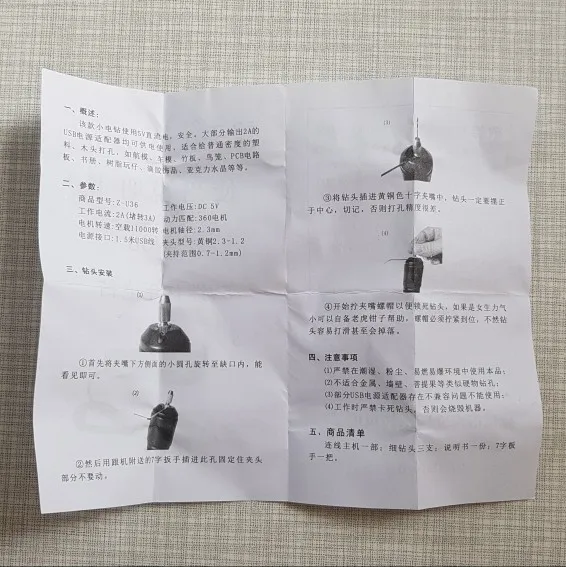 一、概述：
该款小电钻使用5V直流电，安全。大部分输出2A的
USB电源适配器均可供电使用，适合给普通密度的塑
料、木头打孔，如航模、车模、竹板、鸟笼、PCB电路
板、书册、树脂玩仔、滴胶饰品、亚克力水晶等等。
二、参数：
商品型号：Z-U36 工作电压：DC 5V
工作电流：2A(堵转3A) 动力匹配：360电机
电机转速：空载11000转 电机轴径：2.3mm
电源接口：1.5米USB线 夹头型号：黄铜2.3-1.2
(夹持范围0.7-1.2mm)
三、钻头安装
(1)
①首先将夹嘴下方侧面的小圆孔旋转至缺口内，能
看见即可。
(2)
②然后用跟机附送的7字扳手插进此孔固定住夹头
部分不要动。
(3)
③将钻头插进黄铜色十字夹嘴中，钻头一定要摆正
于中心，切记，否则打孔精度很差。
(4)
④开始拧夹嘴螺帽以便锁死钻头，如果是女生力气
小可以自备老虎钳子帮助，螺帽必须拧紧到位，不然钻
头容易打滑甚至会掉落。
四、注意事项
(1)严禁在潮湿、粉尘、易燃易爆环境中使用本品；
(2)不适合金属、墙壁、菩提果等类似硬物钻孔；
(3)部分USB电源适配器存在不兼容问题不能使用；
(4)工作时严禁卡死钻头，否则会烧毁机器。
五、商品清单
连线主机一部；细钻头三支；说明书一份；7字扳
手一把。